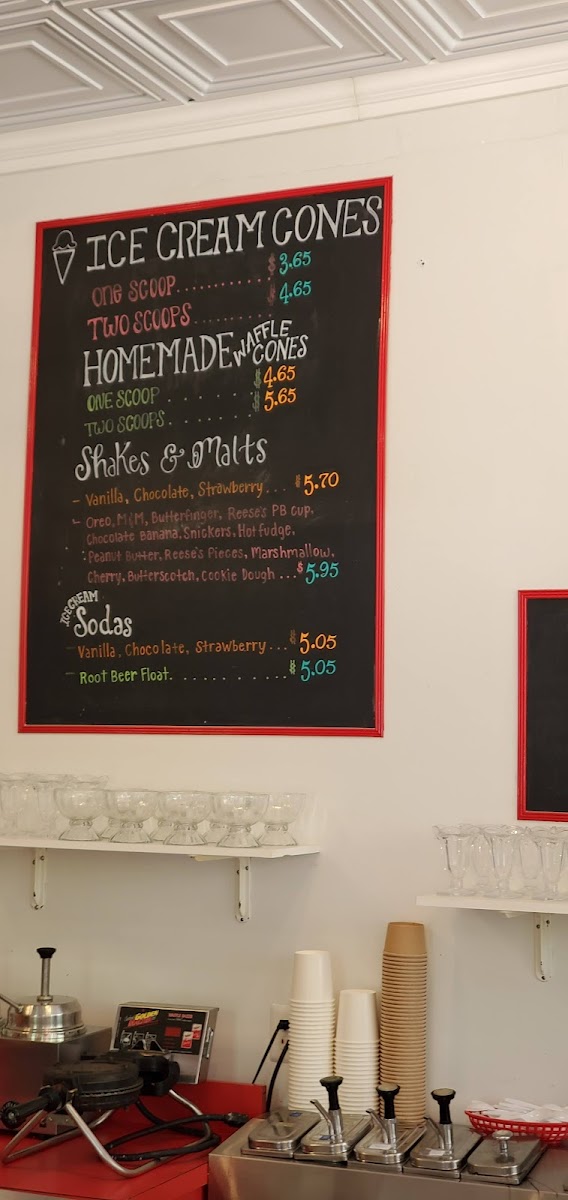 ICE CREAM CONES
ONE SCOOP........... $3.65
TWO SCOOPS......... $4.65
HOMEMADE WAFFLE CONES
ONE SCOOP . . . . . . $4.65
TWO SCOOPS. . . . . . $5.65
Shakes & Malts
- Vanilla, Chocolate, Strawberry.... $5.70
- Oreo, M&M, Butterfinger, Reese's PB Cup,
Chocolate Banana, Snickers, Hot fudge,
Peanut Butter, Reese's Pieces, Marshmallow,
Cherry, Butterscotch, Cookie Dough ... $5.95
ICE CREAM
Sodas
- Vanilla, Chocolate, Strawberry... $5.05
- Root Beer Float. . . . . . . . . $5.05
GOLDEN